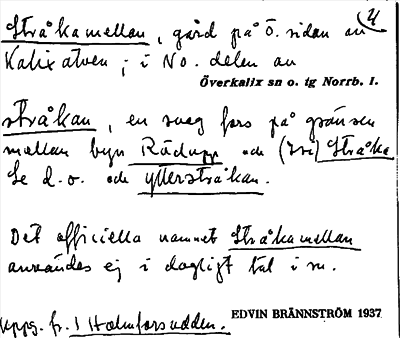 Stråkamellan, gård på Ö. sidan av 4
Kalix älven; i NO. delen av
Överkalix sn o. tg Norrb. l.
stråkan, en svag fors på gränsen
mellan byn Rödupp och Stråka
Se d.o. och ytterstråkan.
Det officiella namnet Stråkamellan
användes ej i dagligt tal i m.
Uppg. fr. 1 Holmforsudden.
EDVIN BRÄNNSTRÖM 1937